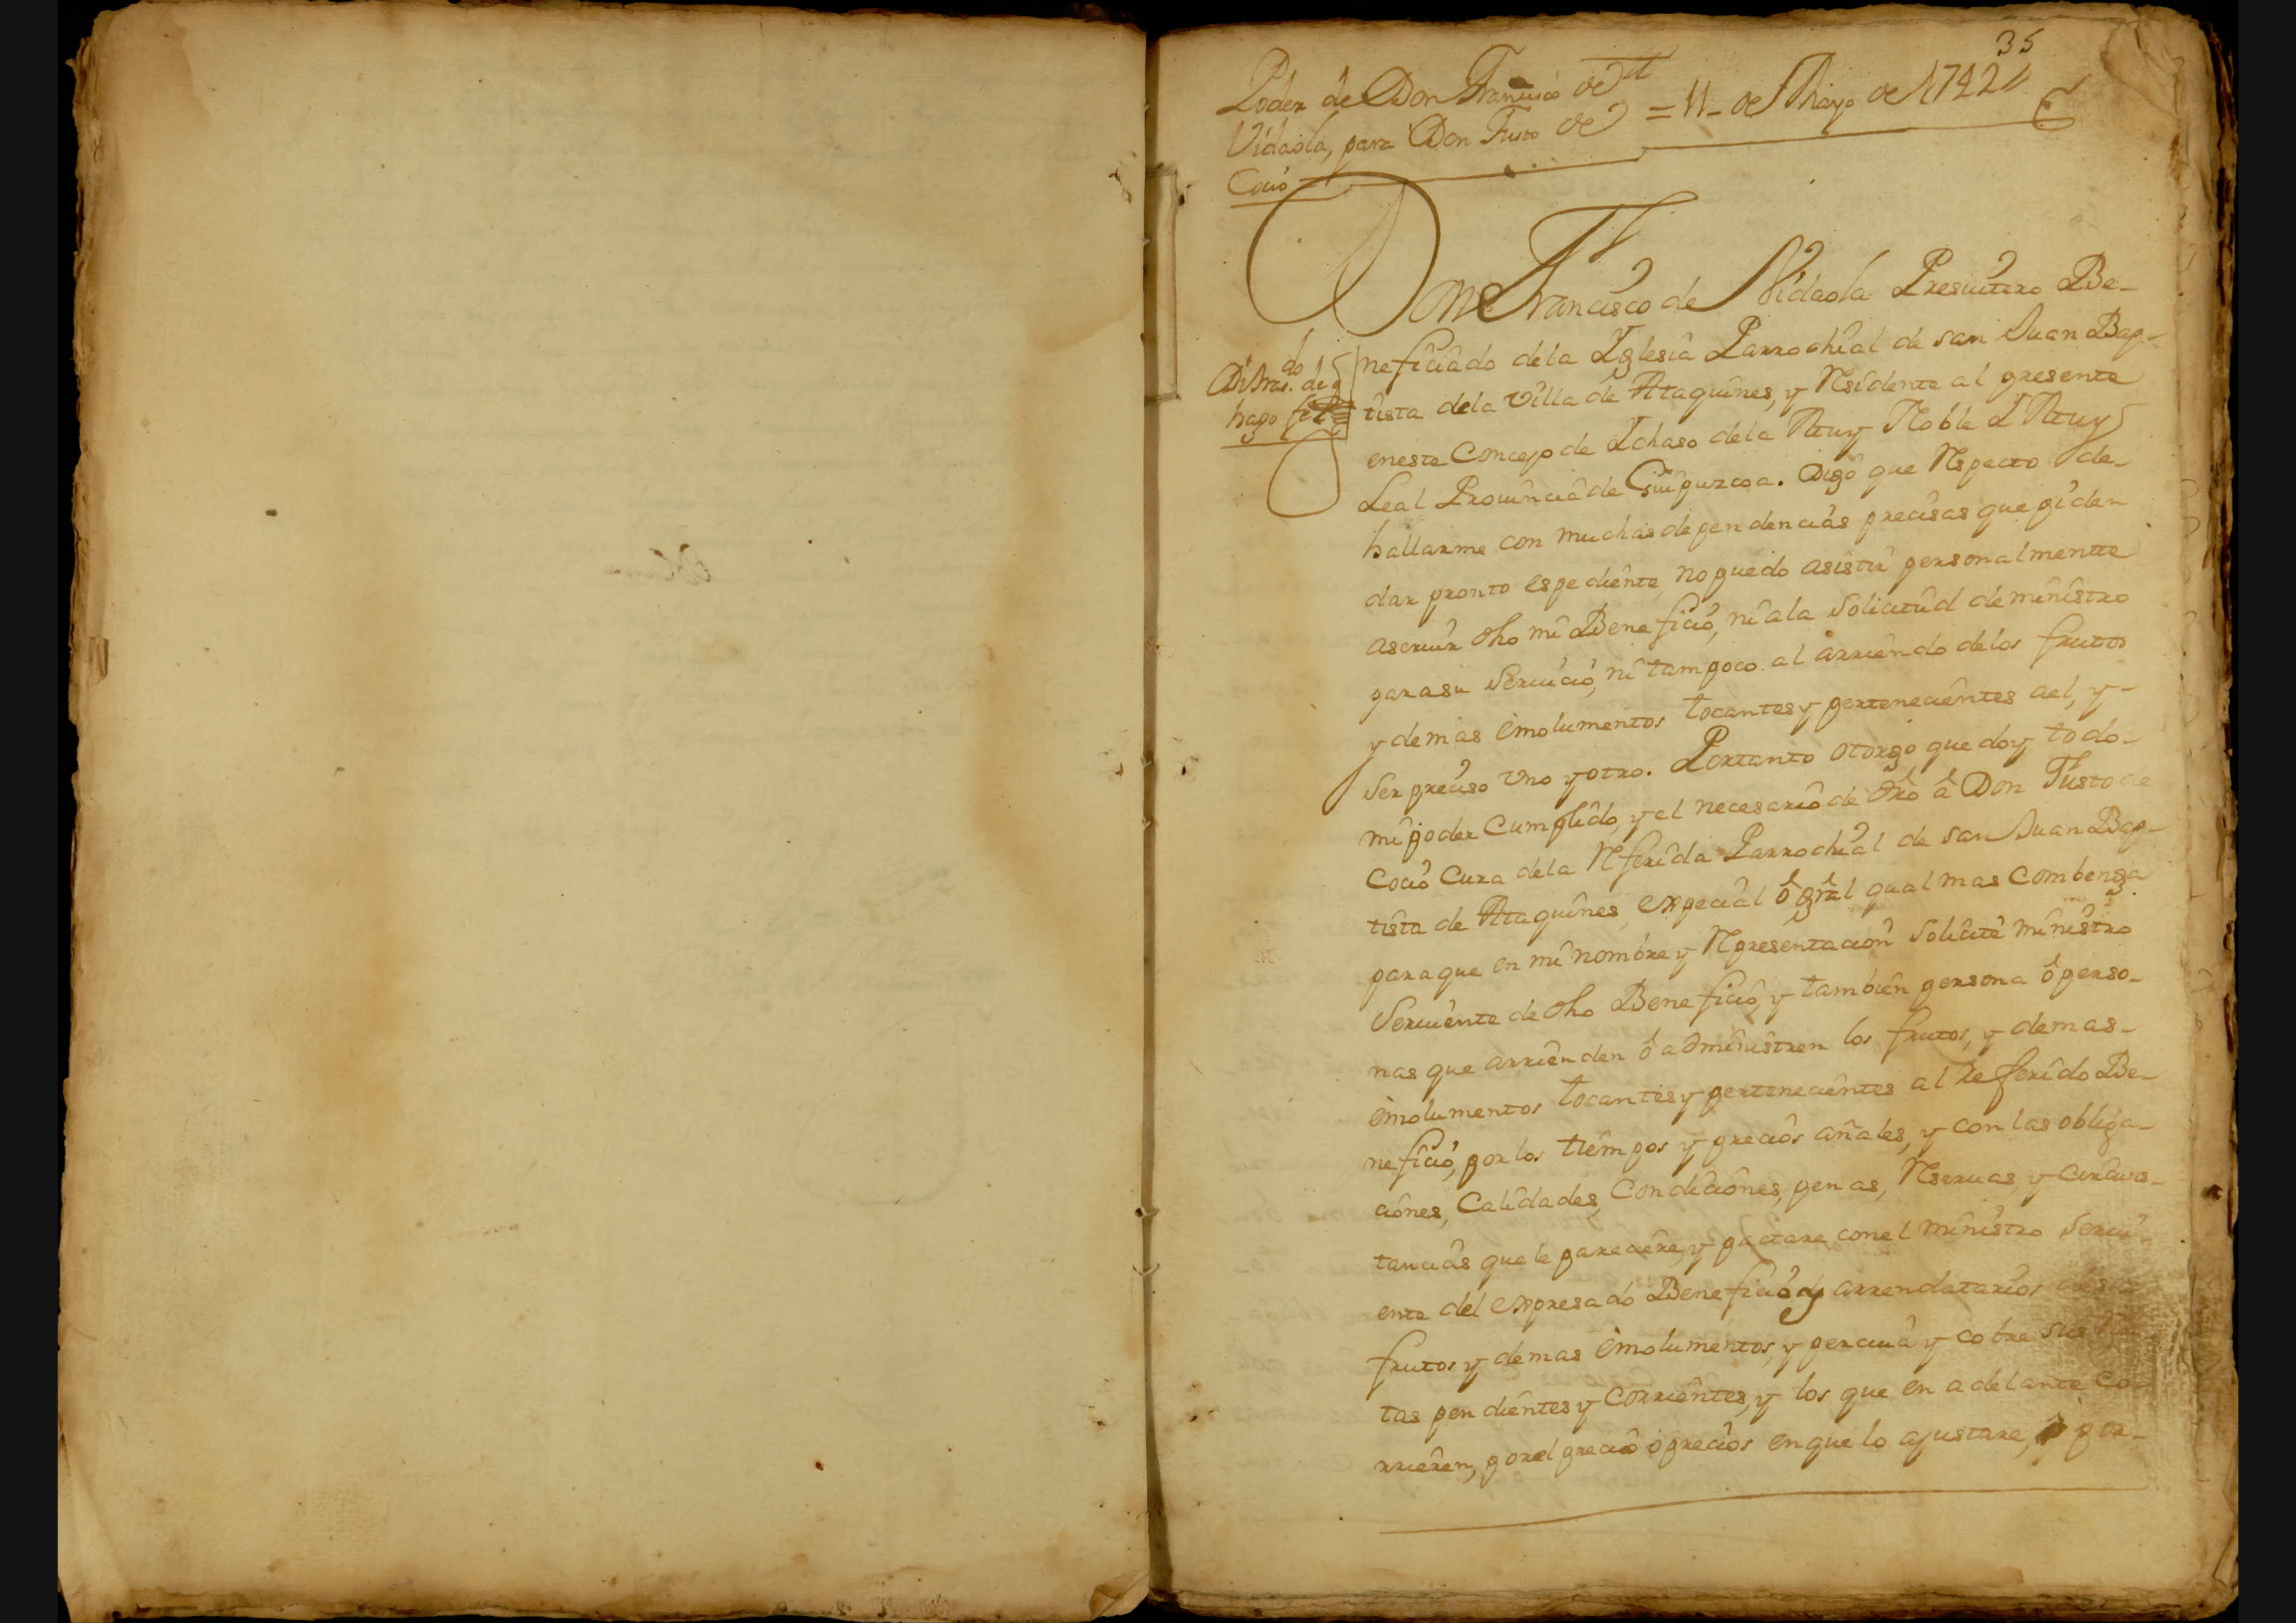 35
Poder de Don Francisco de
Vidaola, para Don Justo de = 11- de Mayo de 1742
Cocio
Don Francisco de Vidaola Presuitero Be-
neficiado dela Yglesia Parrochial de san Juan Bap-
tista dela villa de Ataquines, y Residente al presente
eneste Concejo de Ychaso dela Muy Noble Y Muy
Leal Prouincia de Guipuzcoa. Digo que Respecto de-
hallarme con muchas dependencias precisas que piden
dar pronto espediente, no puedo asistir personalmentte
aseruir dho mi Beneficio, ni ala solicitud de ministro
parasu seruicio, ni tampoco al arriendo delos frutos
y demas emolumentos tocantes y pertenecientes ael, y-
ser preciso vno y otro. Portanto otorgo que doy todo-
mi poder Cumplido, y el necesario de dro â Don Justo de
Cocio Cura dela Referida Parrochial de san Juan Bap-
tista de Ataquines, especial ô gral qual mas combenga
paraque en mi nombre y Representacion solicite ministro
Seruiente de dho Beneficio, y tambien persona ô perso-
nas que arrienden ô administren los frutos, y demas-
emolumentos tocantes y pertenecientes al Referido Be-
neficio, por los tiempos y precios añales, y con las obliga-
ciones, Calidades, Condiciones, penas, Reseruas, y Circuns-
tancias que le pareciere, y pactare conel ministro Serui-
ente del expresado Beneficio y arrendatarios
frutos y demas emolumentos, y perciua y cobre sus
tas pendientes y corrientes, y los que en adelante co-
rrieren, porel precio o precios enque lo ajustare, por-
do
hago fee